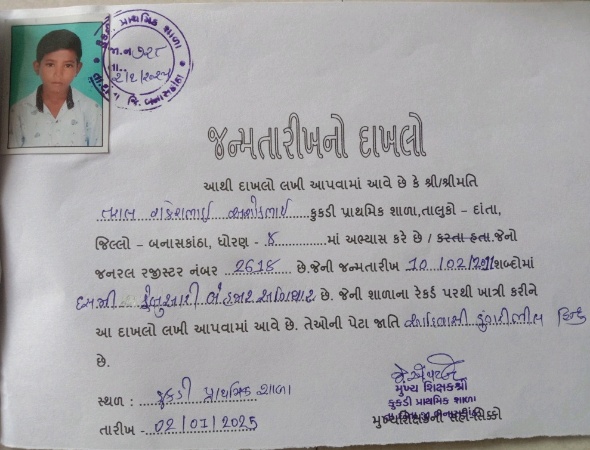 કુકડી પ્રાથમિક શાળા
જા.નં ૭૨૬
તા. ૨/૧/૨૦૨૫
જિ. બનાસકાંઠા
જન્મતારીખનો દાખલો
આથી દાખલો લખી આપવામાં આવે છે કે શ્રી/શ્રીમતિ
કુકડી પ્રાથમિક શાળા,તાલુકો - દાંતા,
જિલ્લો - બનાસકાંઠા, ધોરણ - ૪ માં અભ્યાસ કરે છે / કરતા હતા.જેનો
જનરલ રજીસ્ટર નંબર 2618 છે.જેની જન્મતારીખ 10/02/2011 શબ્દોમાં
દસમી ફેબ્રુઆરી બે હજાર અગિયાર છે. જેની શાળાના રેકર્ડ પરથી ખાત્રી કરીને
આ દાખલો લખી આપવામાં આવે છે. તેઓની પેટા જાતિ આદિવાસી ડુંગરીભીલ હિન્દુ
છે.
સ્થળ : કુકડી પ્રાથમિક શાળા
તારીખ - 02/01/2025
મુખ્ય શિક્ષકશ્રી
કુકડી પ્રાથમિક શાળા
મુખ્યશિક્ષકની સહી સિક્કો